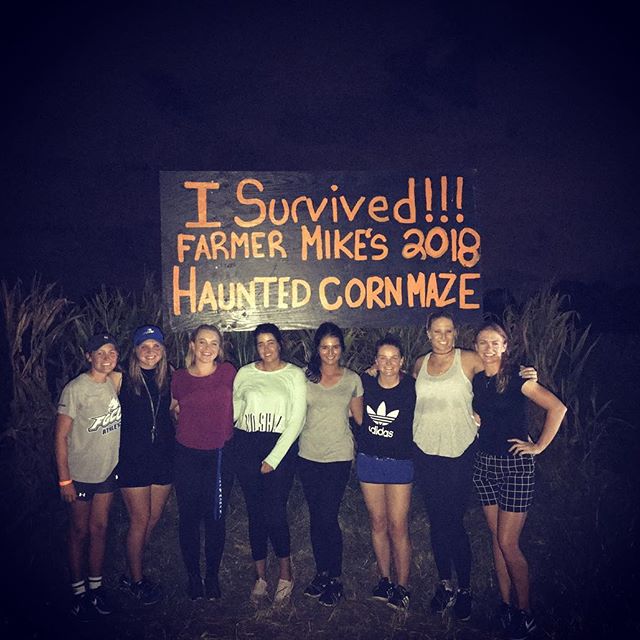 I Survived!!!
FARMER MIKE'S 2018
HAUNTED CORN MAZE
adidas